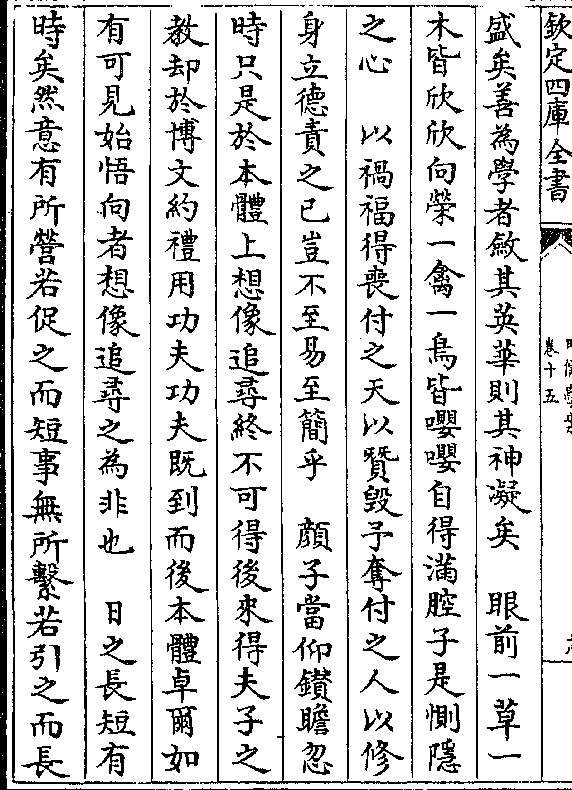 欽定四庫全書
卷十五
盛矣善為學者斂其英華則其神凝矣　眼前一草一
木皆欣欣向榮一禽一鳥皆嚶嚶自得滿腔子是惻隱
之心　以禍福得喪付之天以贊毀予奪付之人以修
身立德責之已豈不至易至簡乎　顔子當仰鑚瞻忽
時只是於本體上想像追尋終不可得後來得夫子之
教却於博文約禮用功夫功夫既到而後本體卓爾如
有可見始悟向者想像追尋之為非也　日之長短有
時矣然意有所營若促之而短事無所繫若引之而長